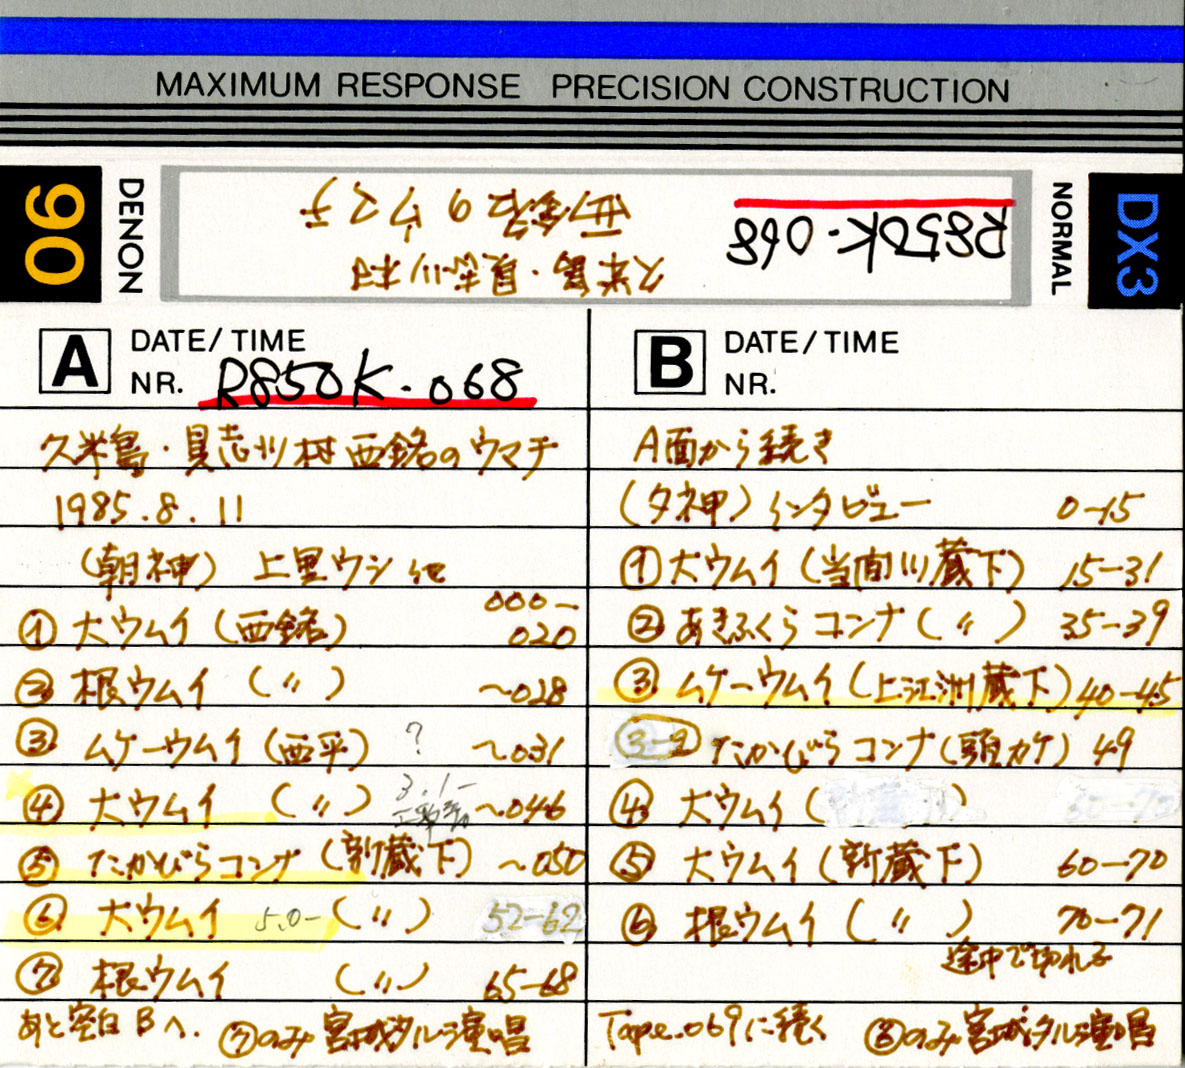 MAXIMUM RESPONSE PRECISION CONSTRUCTION
90
DENON
R850K-068
久米島・具志川村
西銘のウマチ
NORMAL
DX3
A DATE/TIME
NR. R850K-068
久米島・具志川村西銘のウマチ
1985.8.11
(朝神) 上里ウシ 他
① 大ウムイ (西銘) 000-020
② 根ウムイ (〃) ~028
③ ムケーウムイ (西平) ? ~031
④ 大ウムイ (〃) 3.1- ~046
⑤ たかびらコンナ (新蔵下) ~050
⑥ 大ウムイ 5.0- (〃) 52-62
⑦ 根ウムイ (〃) 65-68
あと空白 Bへ. ⑦のみ宮城タル演唱
B DATE/TIME
NR.
A面から続き
(夕神) インタビュー 0-15
① 大ウムイ (当間川蔵下) 15-31
② あきふくらコンナ (〃) 35-39
③ ムケーウムイ (上江洲蔵下) 40-45
③-2 たかびらコンナ (頭カケ) 49
④ 大ウムイ ( )
⑤ 大ウムイ (新蔵下) 60-70
⑥ 根ウムイ (〃) 70-71
途中で切れる
Tape.069に続く ⑧のみ宮城タル演唱